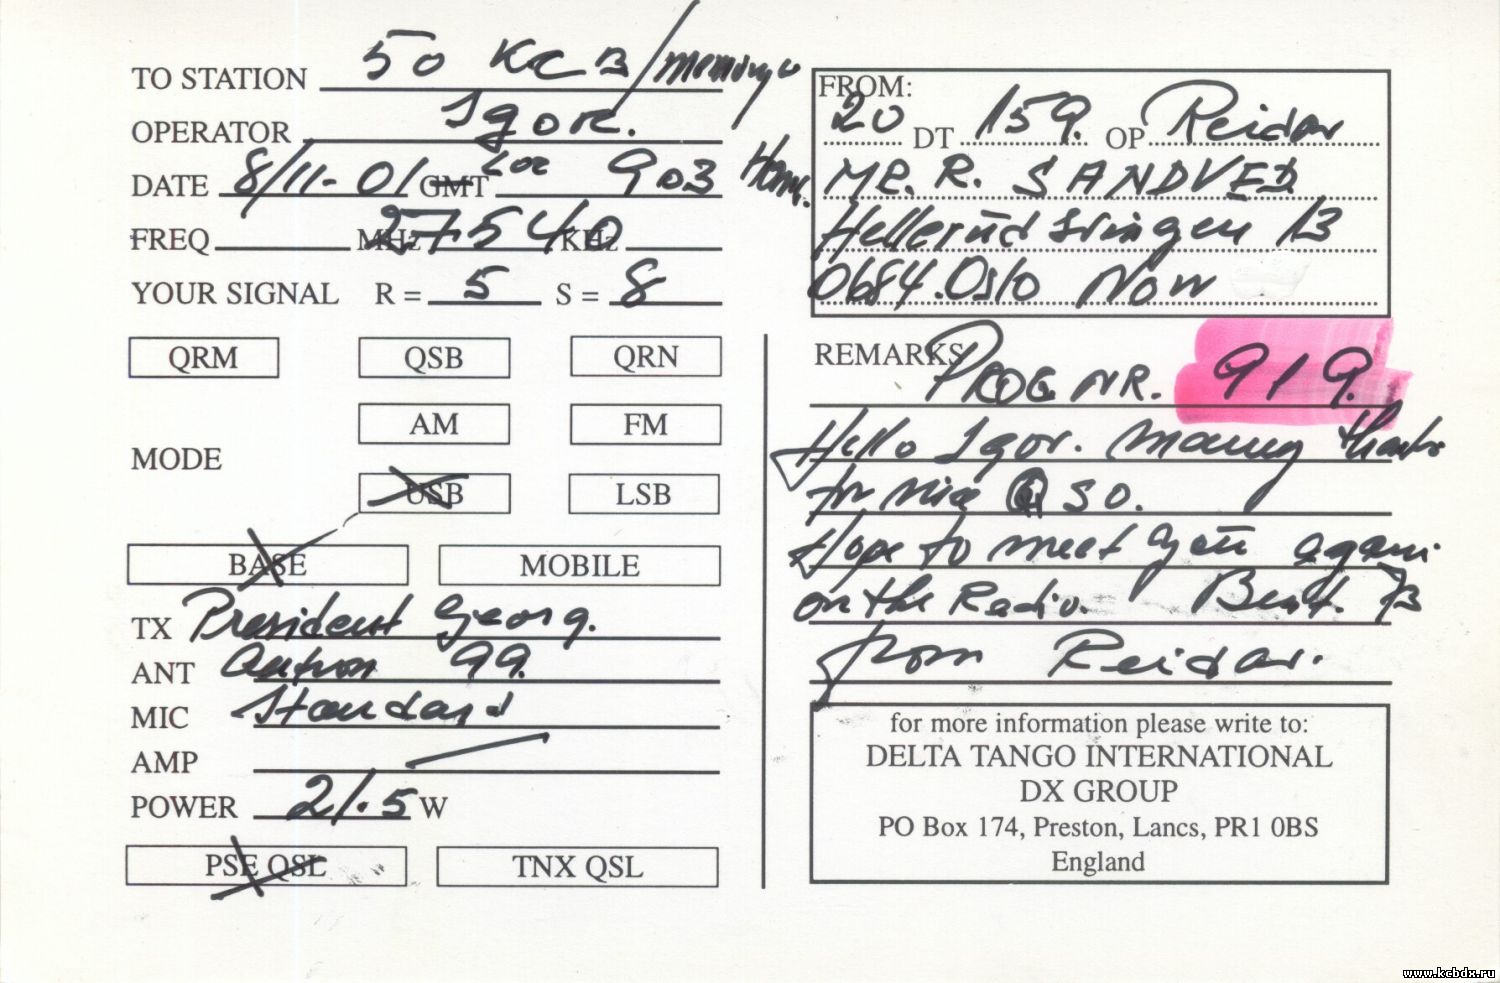 TO STATION 50 KCB/
OPERATOR Igor.
DATE 8/11-01 GMT Loc 903
FREQ MHz 27540 KHz
YOUR SIGNAL R = 5 S = 8
QRM QSB QRN
AM FM
MODE
USB LSB
BASE MOBILE
TX President Georg.
ANT Antron 99.
MIC Standard
AMP
POWER 21.5 W
PSE QSL TNX QSL
FROM:
20 DT 159. OP Reidar
MR. R. SANDVED
Hellerudsvingen 13
0684. Oslo Now
REMARKS PROG NR. 919.
Hello Igor. Many thanks
for nice QSO.
Hope to meet you again
on the Radio. Best. 73
from Reidar.
for more information please write to:
DELTA TANGO INTERNATIONAL
DX GROUP
PO Box 174, Preston, Lancs, PR1 0BS
England
www.kcbdx.ru